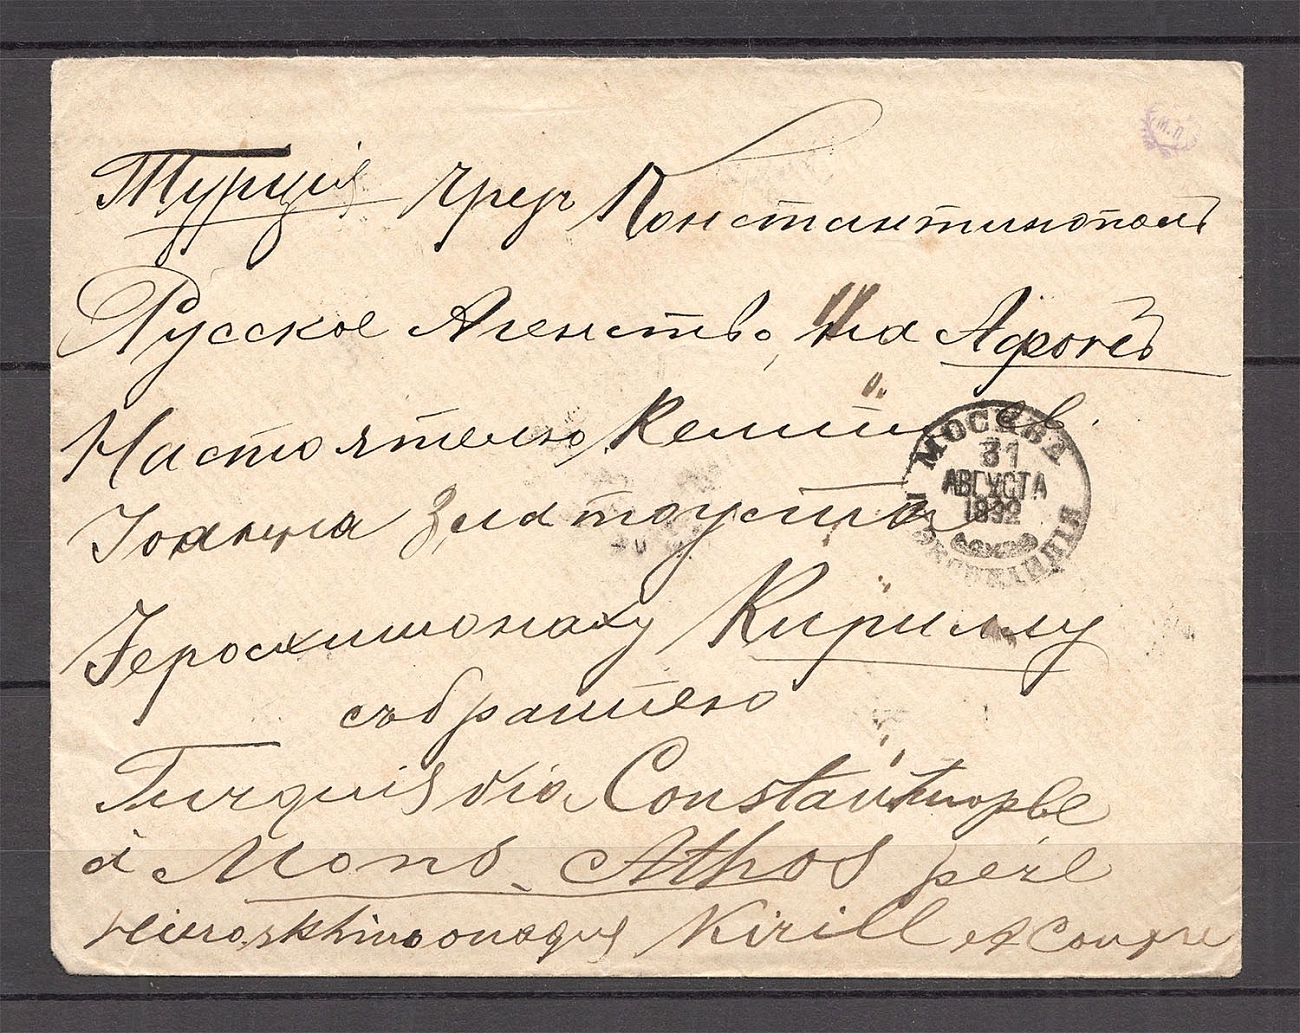 М.П
Турція чрезъ Константинополь
Русское Агенство, на Афонѣ
Настоятелю Келліи св.
Іоанна Златоуста
Іеросхимонаху Кириллу
съ братіею
МОСКВА
31
АВГУСТА
1892
ЭКСПЕДИЦІЯ
Turquie via Constantinople
à Mont Athos pére
Kirill et Compe